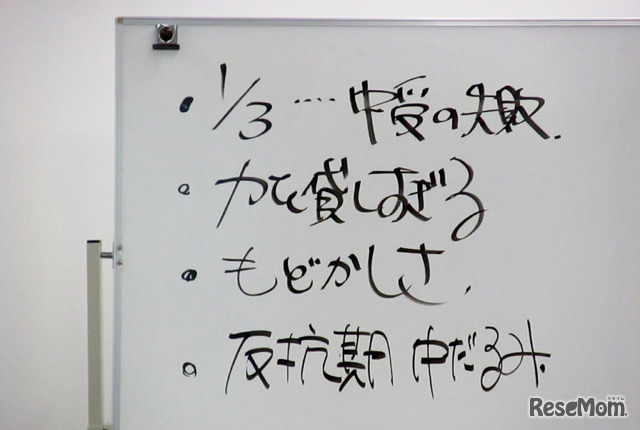 ・1/3 ‥‥ 中受の失敗.
・力を貸しすぎる
・もどかしさ.
・反抗期 中だるみ.
ReseMom.
リセマム